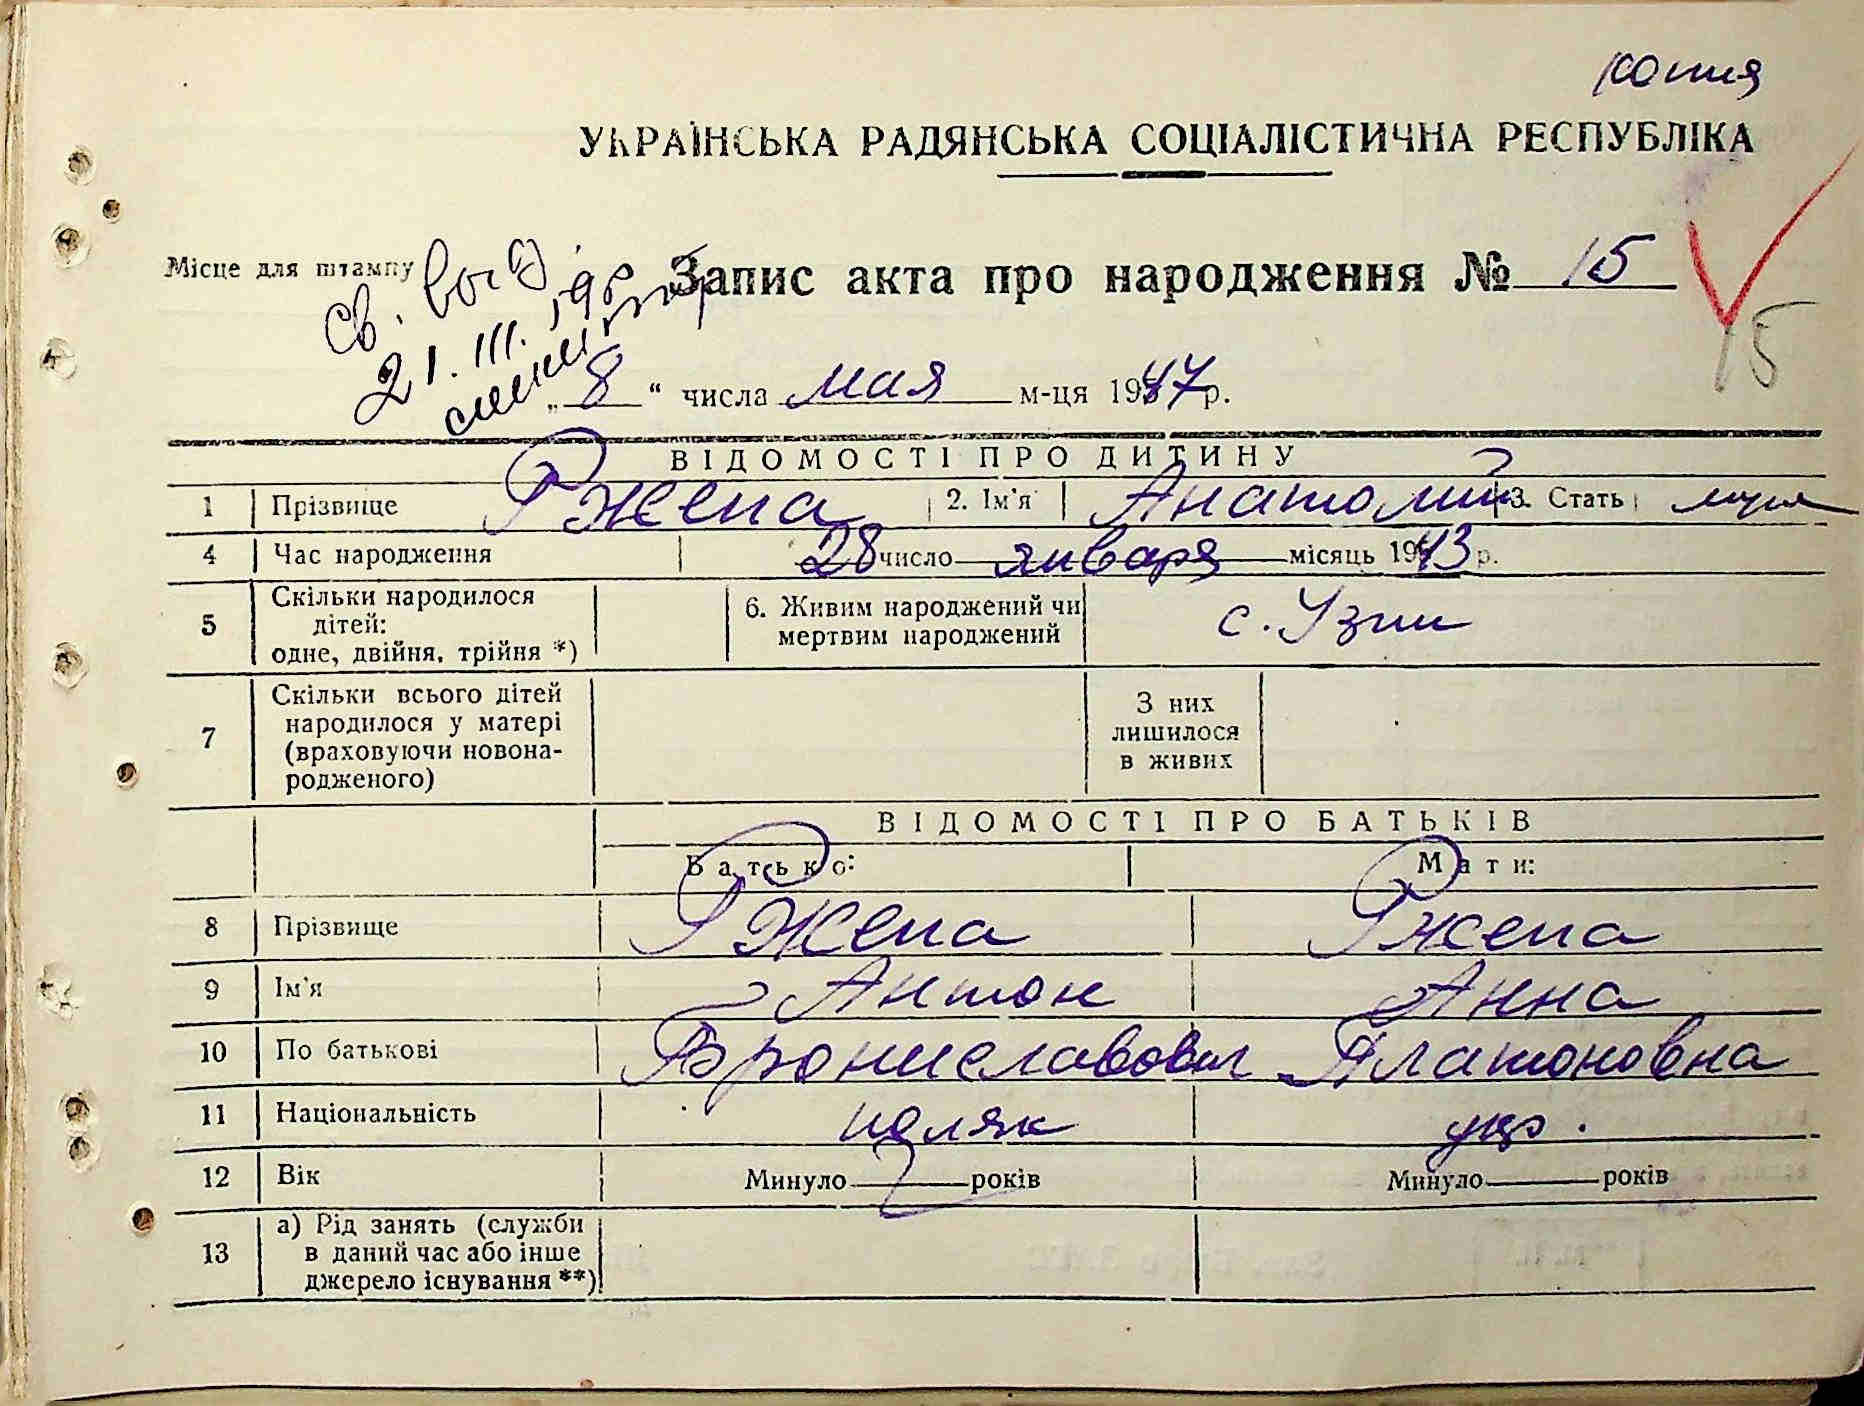 копия
УКРАЇНСЬКА РАДЯНСЬКА СОЦІАЛІСТИЧНА РЕСПУБЛІКА
Місце для штампу
св. выд.
21.III.
Запис акта про народження № 15
15
„ 8 “ числа мая м-ця 1947 р.
ВІДОМОСТІ ПРО ДИТИНУ
1 Прізвище Ржепа 2. Ім'я Анатолий 3. Стать муж
4 Час народження 28 число января місяць 1943 р.
5 Скільки народилося дітей: одне, двійня, трійня *) 6. Живим народжений чи мертвим народжений с. Узин
7 Скільки всього дітей народилося у матері (враховуючи новонародженого) З них лишилося в живих
ВІДОМОСТІ ПРО БАТЬКІВ
Батько: Мати:
8 Прізвище Ржепа Ржепа
9 Ім'я Антон Анна
10 По батькові Брониславович Платоновна
11 Національність поляк укр.
12 Вік Минуло років Минуло років
13 а) Рід занять (служби в даний час або інше джерело існування **)